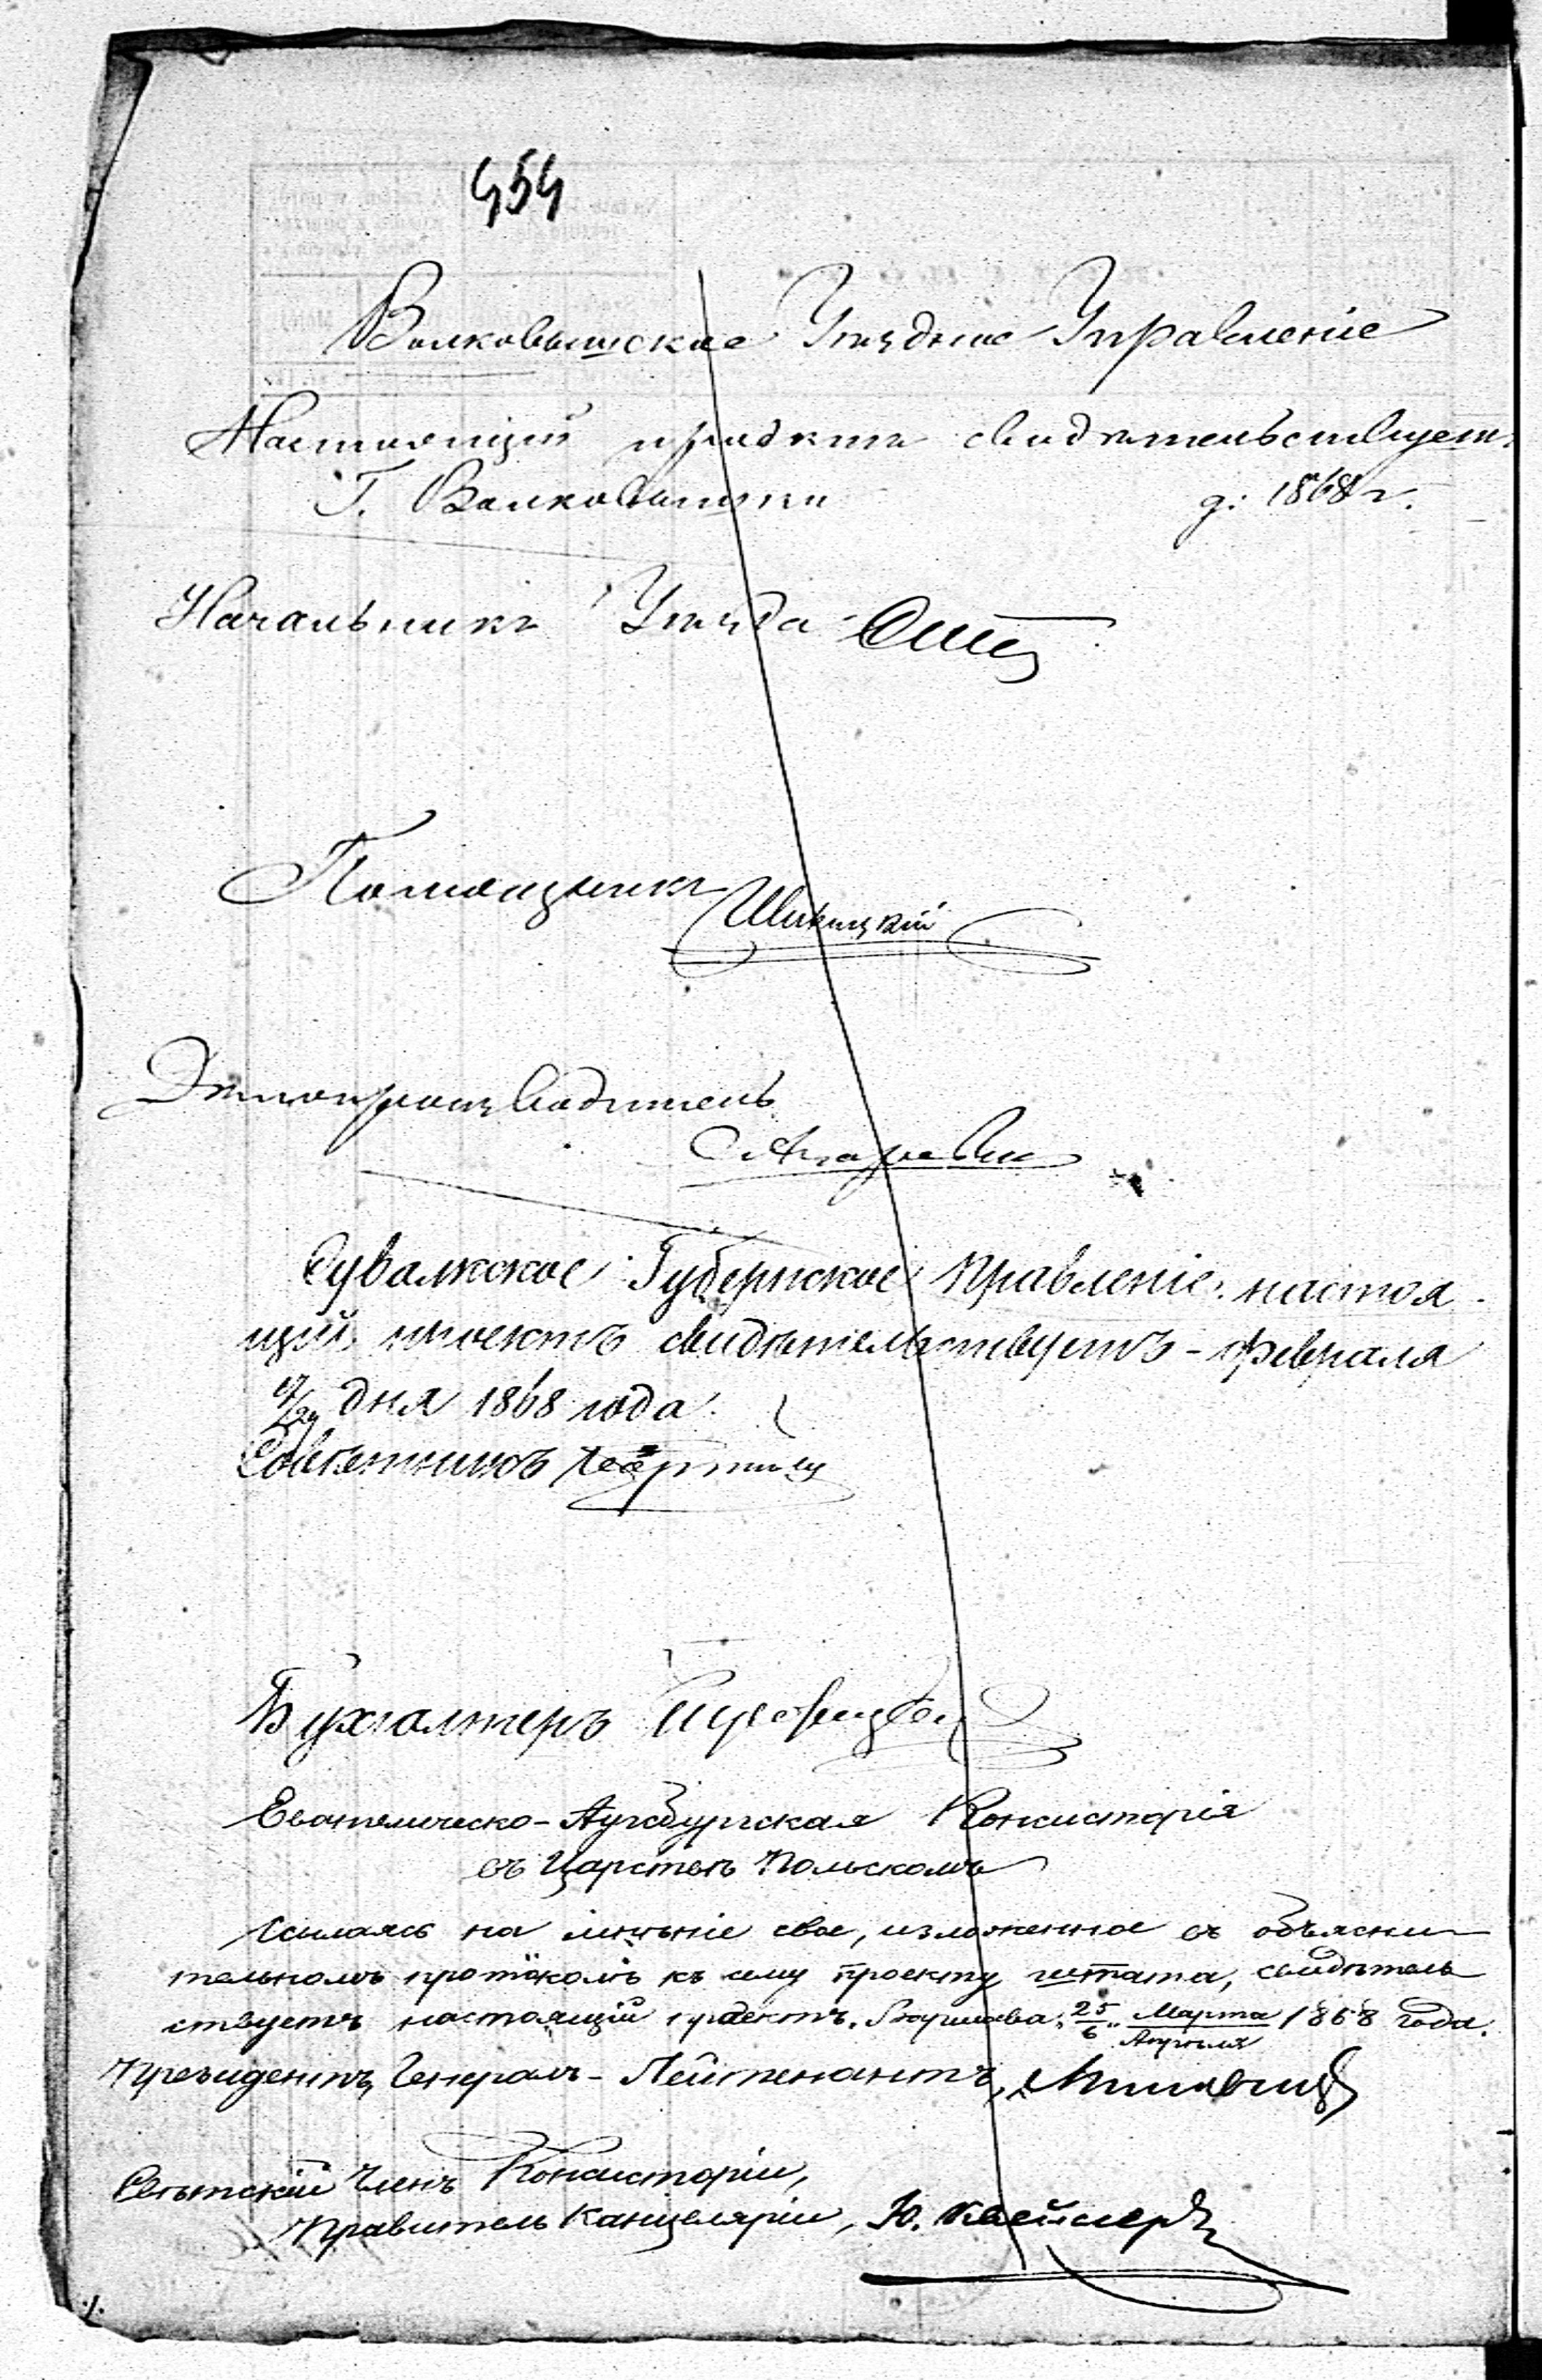 454
Волковышское Уѣздное Управленіе
Настоящій проэктъ свидѣтельствуетъ
Г. Волковышки д: 1868 г.
Начальникъ Уѣзда
Помощникъ
Дѣлопроизводитель
Сувалкское Губернское Правленіе настоя
щій проектъ свидѣтельствуетъ - февраля
дня 1868 года.
Совѣтникъ
Бухгалтеръ
Евангелическо-Аугсбургская Консисторія
въ Царствѣ Польскомъ
Ссылаясь на мнѣніе свое, изложенное въ объясни
тельномъ протоколѣ къ сему проекту штата, свидѣтель
ствуетъ настоящій проектъ. Варшава, 25/6 Марта/Апрѣля 1868 года.
Президентъ, Генералъ-Лейтенантъ,
Свѣтскій Членъ Консисторіи,
Правитель Канцеляріи, Ю.